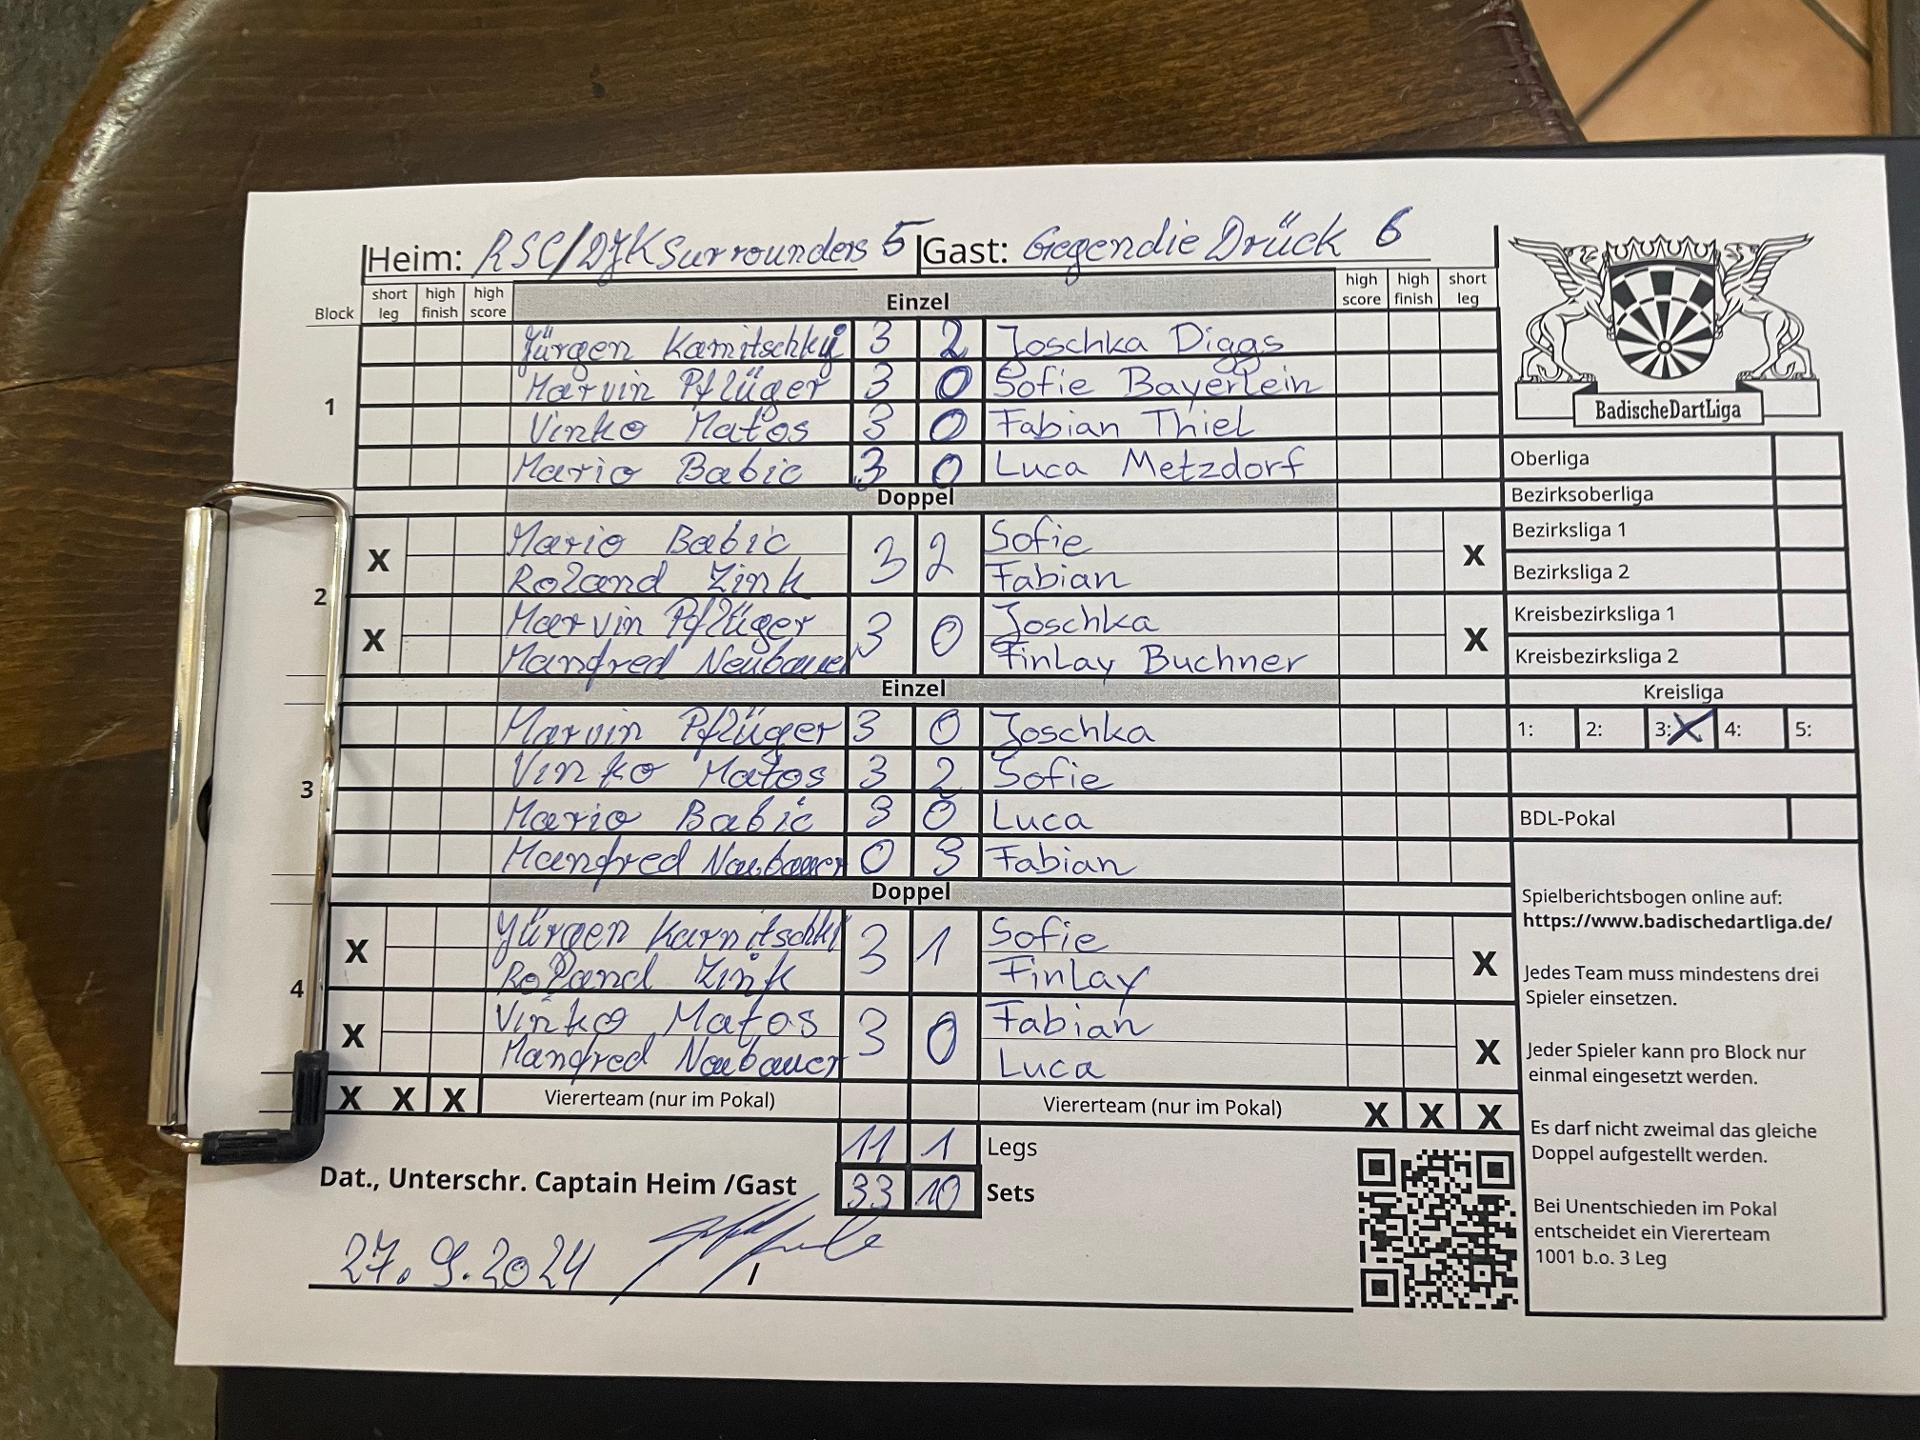 Heim: RSC/DJK Surrounders 5 Gast: Gegen die Drück 6
Block short leg high finish high score Einzel high score high finish short leg
Jürgen Karnitschky 3 2 Joschka Diggs
1 Marvin Pflüger 3 0 Sofie Bayerlein
Vinko Matos 3 0 Fabian Thiel
Mario Babic 3 0 Luca Metzdorf
Doppel
X Mario Babic 3 2 Sofie X
Roland Zink Fabian
2
X Marvin Pflüger 3 0 Joschka X
Manfred Neubauer Finlay Buchner
Einzel
Marvin Pflüger 3 0 Joschka
Vinko Matos 3 2 Sofie
3 Mario Babic 3 0 Luca
Manfred Neubauer 0 3 Fabian
Doppel
X Jürgen Karnitschki 3 1 Sofie X
Roland Zink Finlay
4
X Vinko Matos 3 0 Fabian X
Manfred Neubauer Luca
X X X Viererteam (nur im Pokal) Viererteam (nur im Pokal) X X X
11 1 Legs
Dat., Unterschr. Captain Heim /Gast 33 10 Sets
27.9.2024 /
BadischeDartLiga
Oberliga
Bezirksoberliga
Bezirksliga 1
Bezirksliga 2
Kreisbezirksliga 1
Kreisbezirksliga 2
Kreisliga
1: 2: 3: X 4: 5:
BDL-Pokal
Spielberichtsbogen online auf:
https://www.badischedartliga.de/
Jedes Team muss mindestens drei
Spieler einsetzen.
Jeder Spieler kann pro Block nur
einmal eingesetzt werden.
Es darf nicht zweimal das gleiche
Doppel aufgestellt werden.
Bei Unentschieden im Pokal
entscheidet ein Viererteam
1001 b.o. 3 Leg